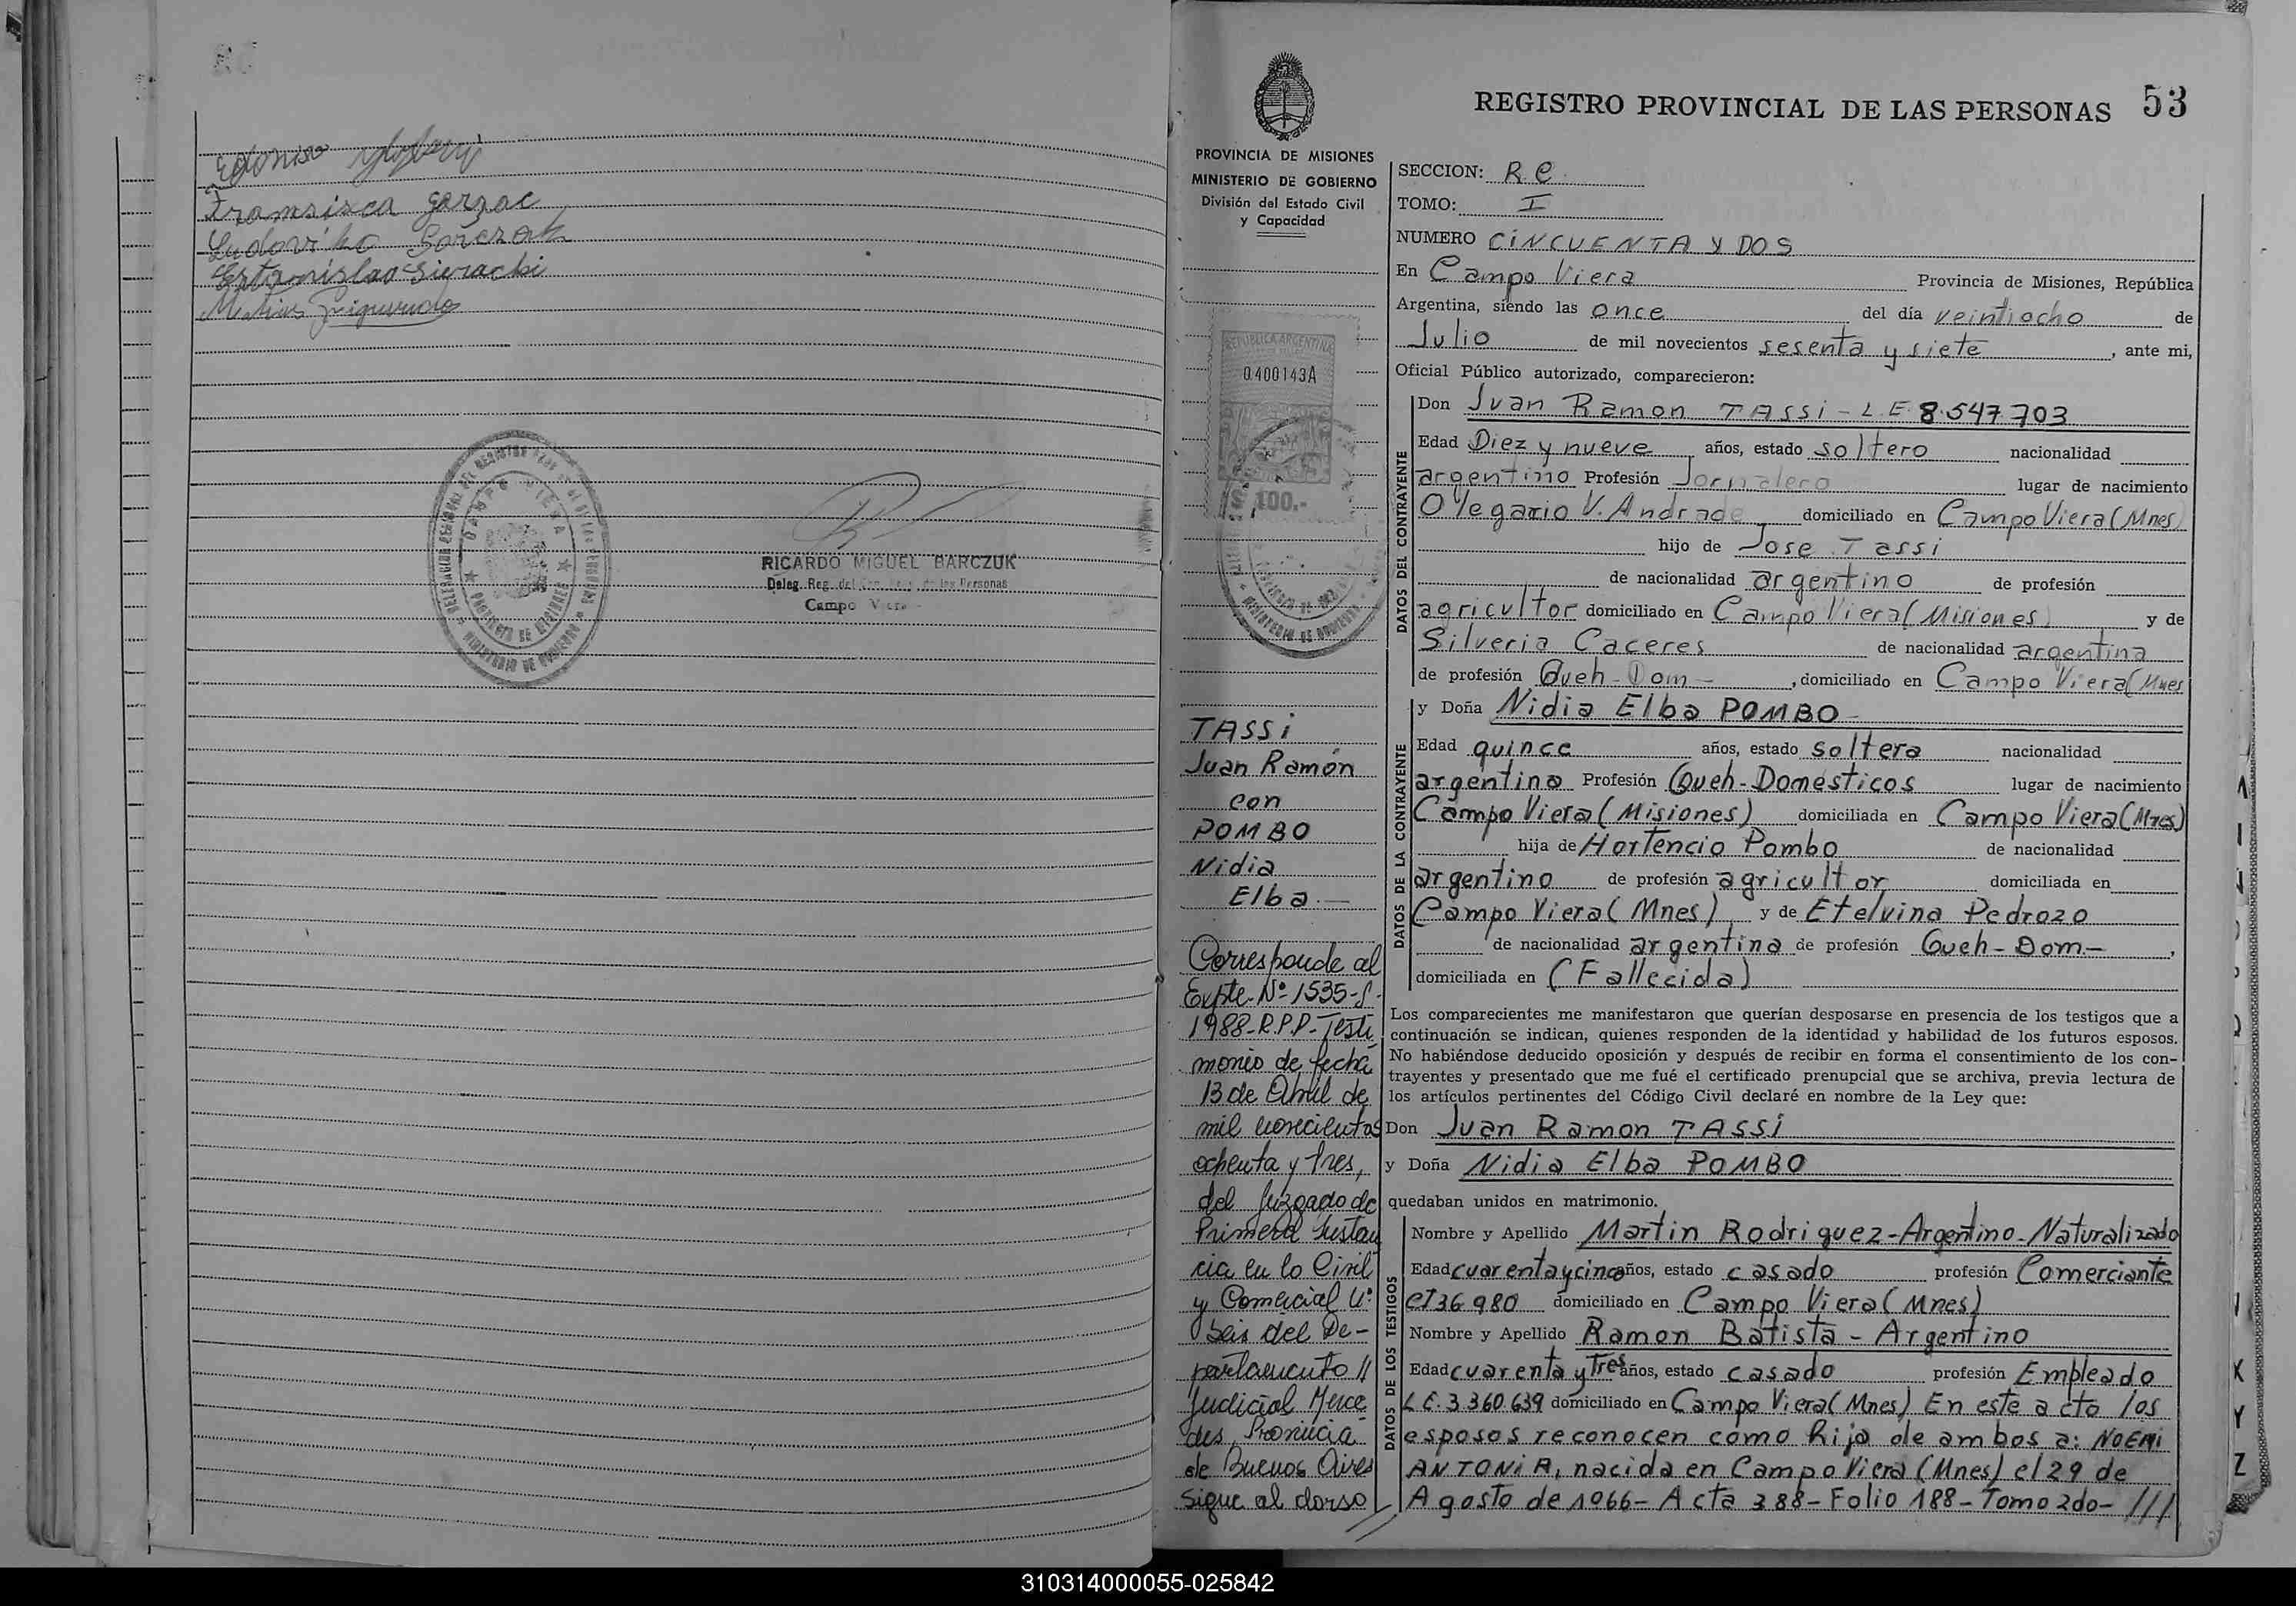 Edoniso
Framsisca gerzac
Ludoviko Gorczak
Estanislao Sieracki
Matias
DELEGACION REGIONAL DEL REGISTRO
CAMPO VIERA
PROVINCIA DE MISIONES
MINISTERIO DE GOBIERNO
RICARDO MIGUEL BARCZUK
Deleg. Reg. del de las Personas
Campo Viera
REGISTRO PROVINCIAL DE LAS PERSONAS 53
PROVINCIA DE MISIONES
MINISTERIO DE GOBIERNO
División del Estado Civil
y Capacidad
REPUBLICA ARGENTINA
0.400143A
100.-
MINISTERIO DE GOBIERNO
TASSi
Juan Ramón
con
POMBO
Nidia
Elba.—
Corresponde al
Expte. Nº 1535-S-
1988-R.P.P- Testi
monio de fecha
13 de Abril de
mil novecientos
ochenta y tres,
del Juzgado de
Primera Instan
cia en lo Civil
y Comercial Nº
Seis del De-
partamento //
Judicial Merce
des, Provincia
de Buenos Aires
Sigue al dorso
SECCION: R.C.
TOMO: I
NUMERO CINCUENTA Y DOS
En Campo Viera Provincia de Misiones, República
Argentina, siendo las once del día veintiocho de
Julio de mil novecientos sesenta y siete, ante mi,
Oficial Público autorizado, comparecieron:
DATOS DEL CONTRAYENTE
Don Juan Ramon TASSi - L.E. 8.547.703
Edad Diez y nueve años, estado soltero nacionalidad
argentino Profesión Jornalero lugar de nacimiento
Olegario V. Andrade domiciliado en Campo Viera (Mnes)
hijo de Jose Tassi
de nacionalidad argentino de profesión
agricultor domiciliado en Campo Viera (Misiones) y de
Silveria Caceres de nacionalidad argentina
de profesión Queh-Dom-, domiciliado en Campo Viera (Mnes
DATOS DE LA CONTRAYENTE
y Doña Nidia Elba POMBO-
Edad quince años, estado soltera nacionalidad
argentina Profesión Queh-Domésticos lugar de nacimiento
Campo Viera (Misiones) domiciliada en Campo Viera (Mnes)
hija de Hortencio Pombo de nacionalidad
argentino de profesión agricultor domiciliada en
Campo Viera (Mnes) y de Etelvina Pedrozo
de nacionalidad argentina de profesión Queh-Dom.-,
domiciliada en (Fallecida)
Los comparecientes me manifestaron que querían desposarse en presencia de los testigos que a
continuación se indican, quienes responden de la identidad y habilidad de los futuros esposos.
No habiéndose deducido oposición y después de recibir en forma el consentimiento de los con-
trayentes y presentado que me fué el certificado prenupcial que se archiva, previa lectura de
los artículos pertinentes del Código Civil declaré en nombre de la Ley que:
Don Juan Ramon TASSi
y Doña Nidia Elba POMBO
quedaban unidos en matrimonio.
DATOS DE LOS TESTIGOS
Nombre y Apellido Martin Rodriguez-Argentino-Naturalizado
Edad cuarenta y cinco años, estado casado profesión Comerciante
CI 36.980 domiciliado en Campo Viera (Mnes)
Nombre y Apellido Ramon Batista - Argentino
Edad cuarenta y Tres años, estado casado profesión Empleado
L.E. 3.360.639 domiciliado en Campo Viera (Mnes) En este acto los
esposos reconocen como hija de ambos a: NOEMi
ANTONiA, nacida en Campo Viera (Mnes) el 29 de
Agosto de 1066- Acta 388- Folio 188- Tomo 2do- ///
K
Y
Z
310314000055-025842